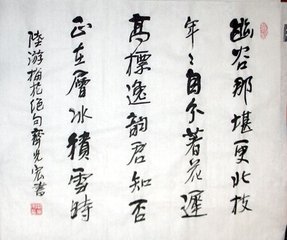 幽谷那堪更北枝
年々自分著花遲
高標逸韻君知否
正在層冰積雪時
陸游梅花絕句 書